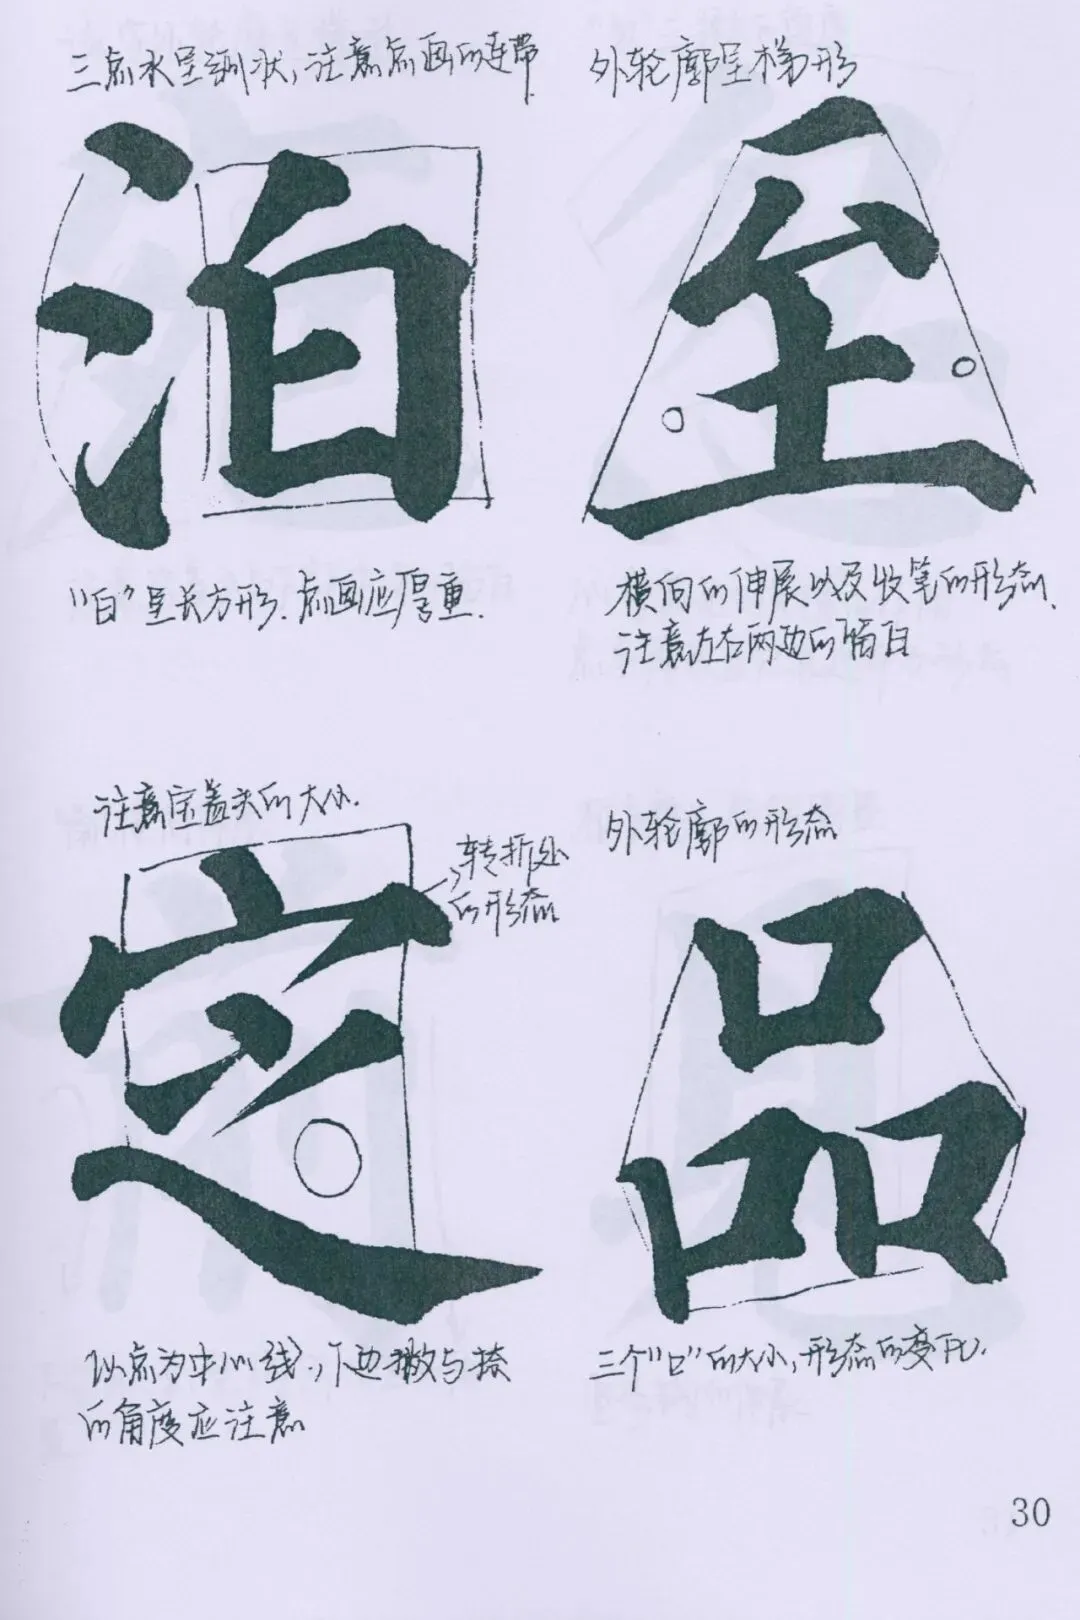 三点水呈弧状，注意点画的连带.
泊
"白"呈长方形.点画应厚重.
外轮廓呈梯形
至
横向的伸展以及收笔的形态.
注意左右两边的留白
注意宝盖头的大小.
转折处
的形态
定
以点为中心线，下边撇与捺
的角度应注意
外轮廓的形态
品
三个"口"的大小，形态的变化.
30